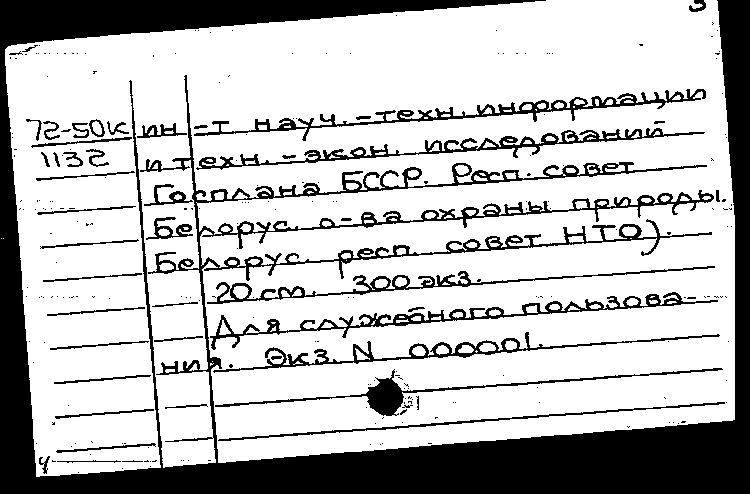 3
72-50К ин-т науч.-техн. информации
1132 и техн.-экон. исследований
Госплана БССР. Респ. совет
Белорус. о-ва охраны природы.
Белорус. респ. совет НТО).
20 см. 300 экз.
Для служебного пользова-
ния. Экз. N 000001.
4